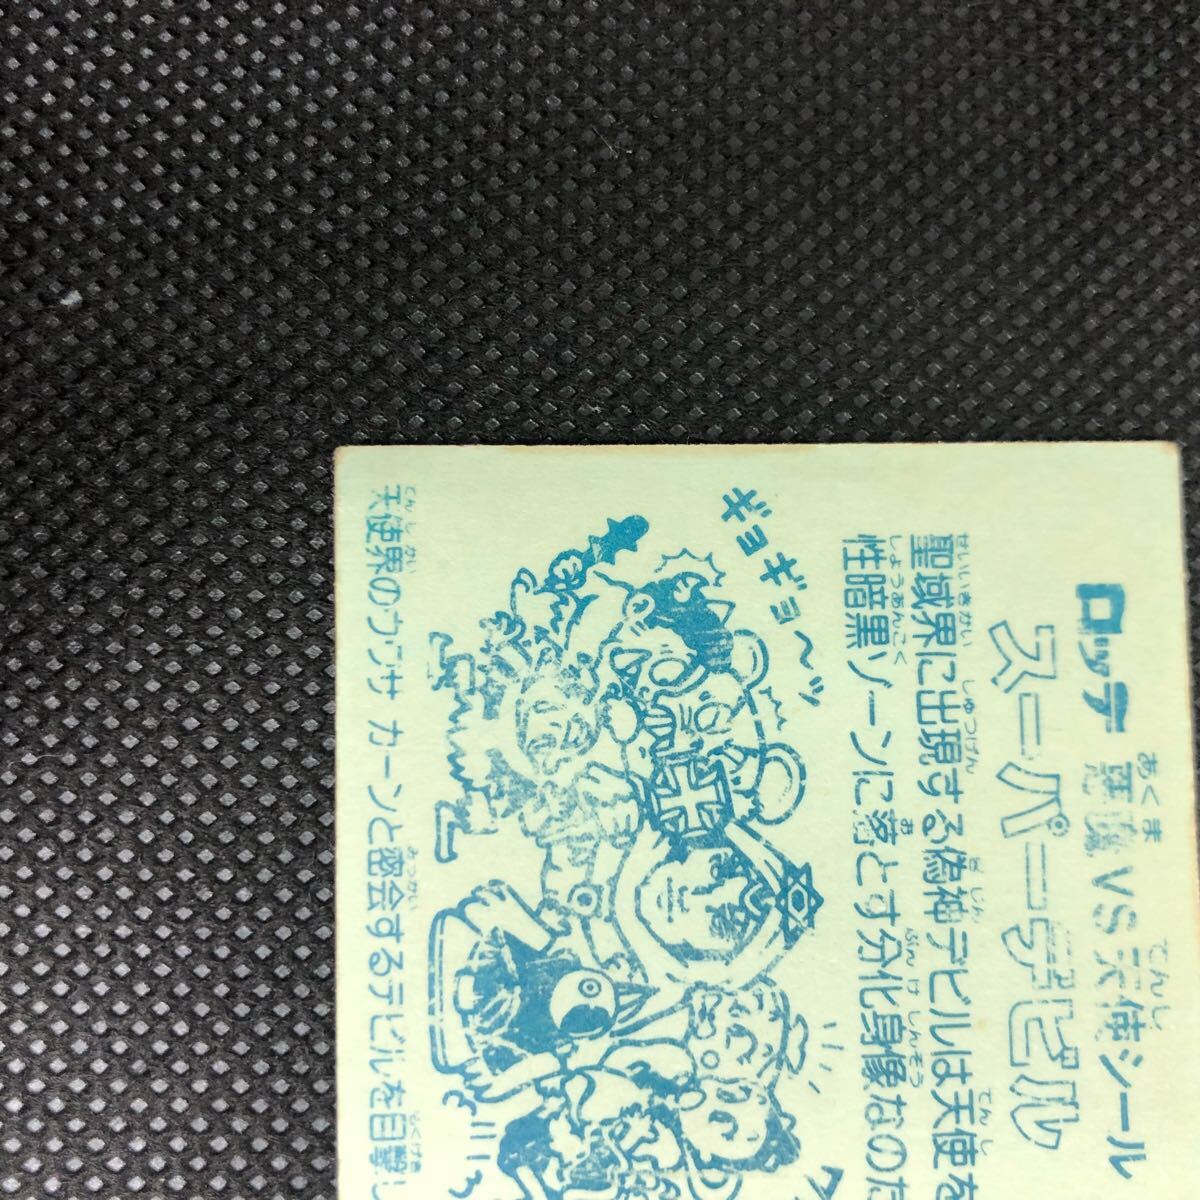 ロッテ 悪魔VS天使シール
あくま てんし
スーパーデビル
せいいきかい しゅつげん ぎしん てんし
聖域界に出現する偽神デビルは天使を
しょうあんこく お ぶんけしんぞう
性暗黒ゾーンに落とす分化身像なのだ
ギョギョ〜ッ
てんしかい みっかい もくげき
天使界のウワサ カーンと密会するデビルを目撃し